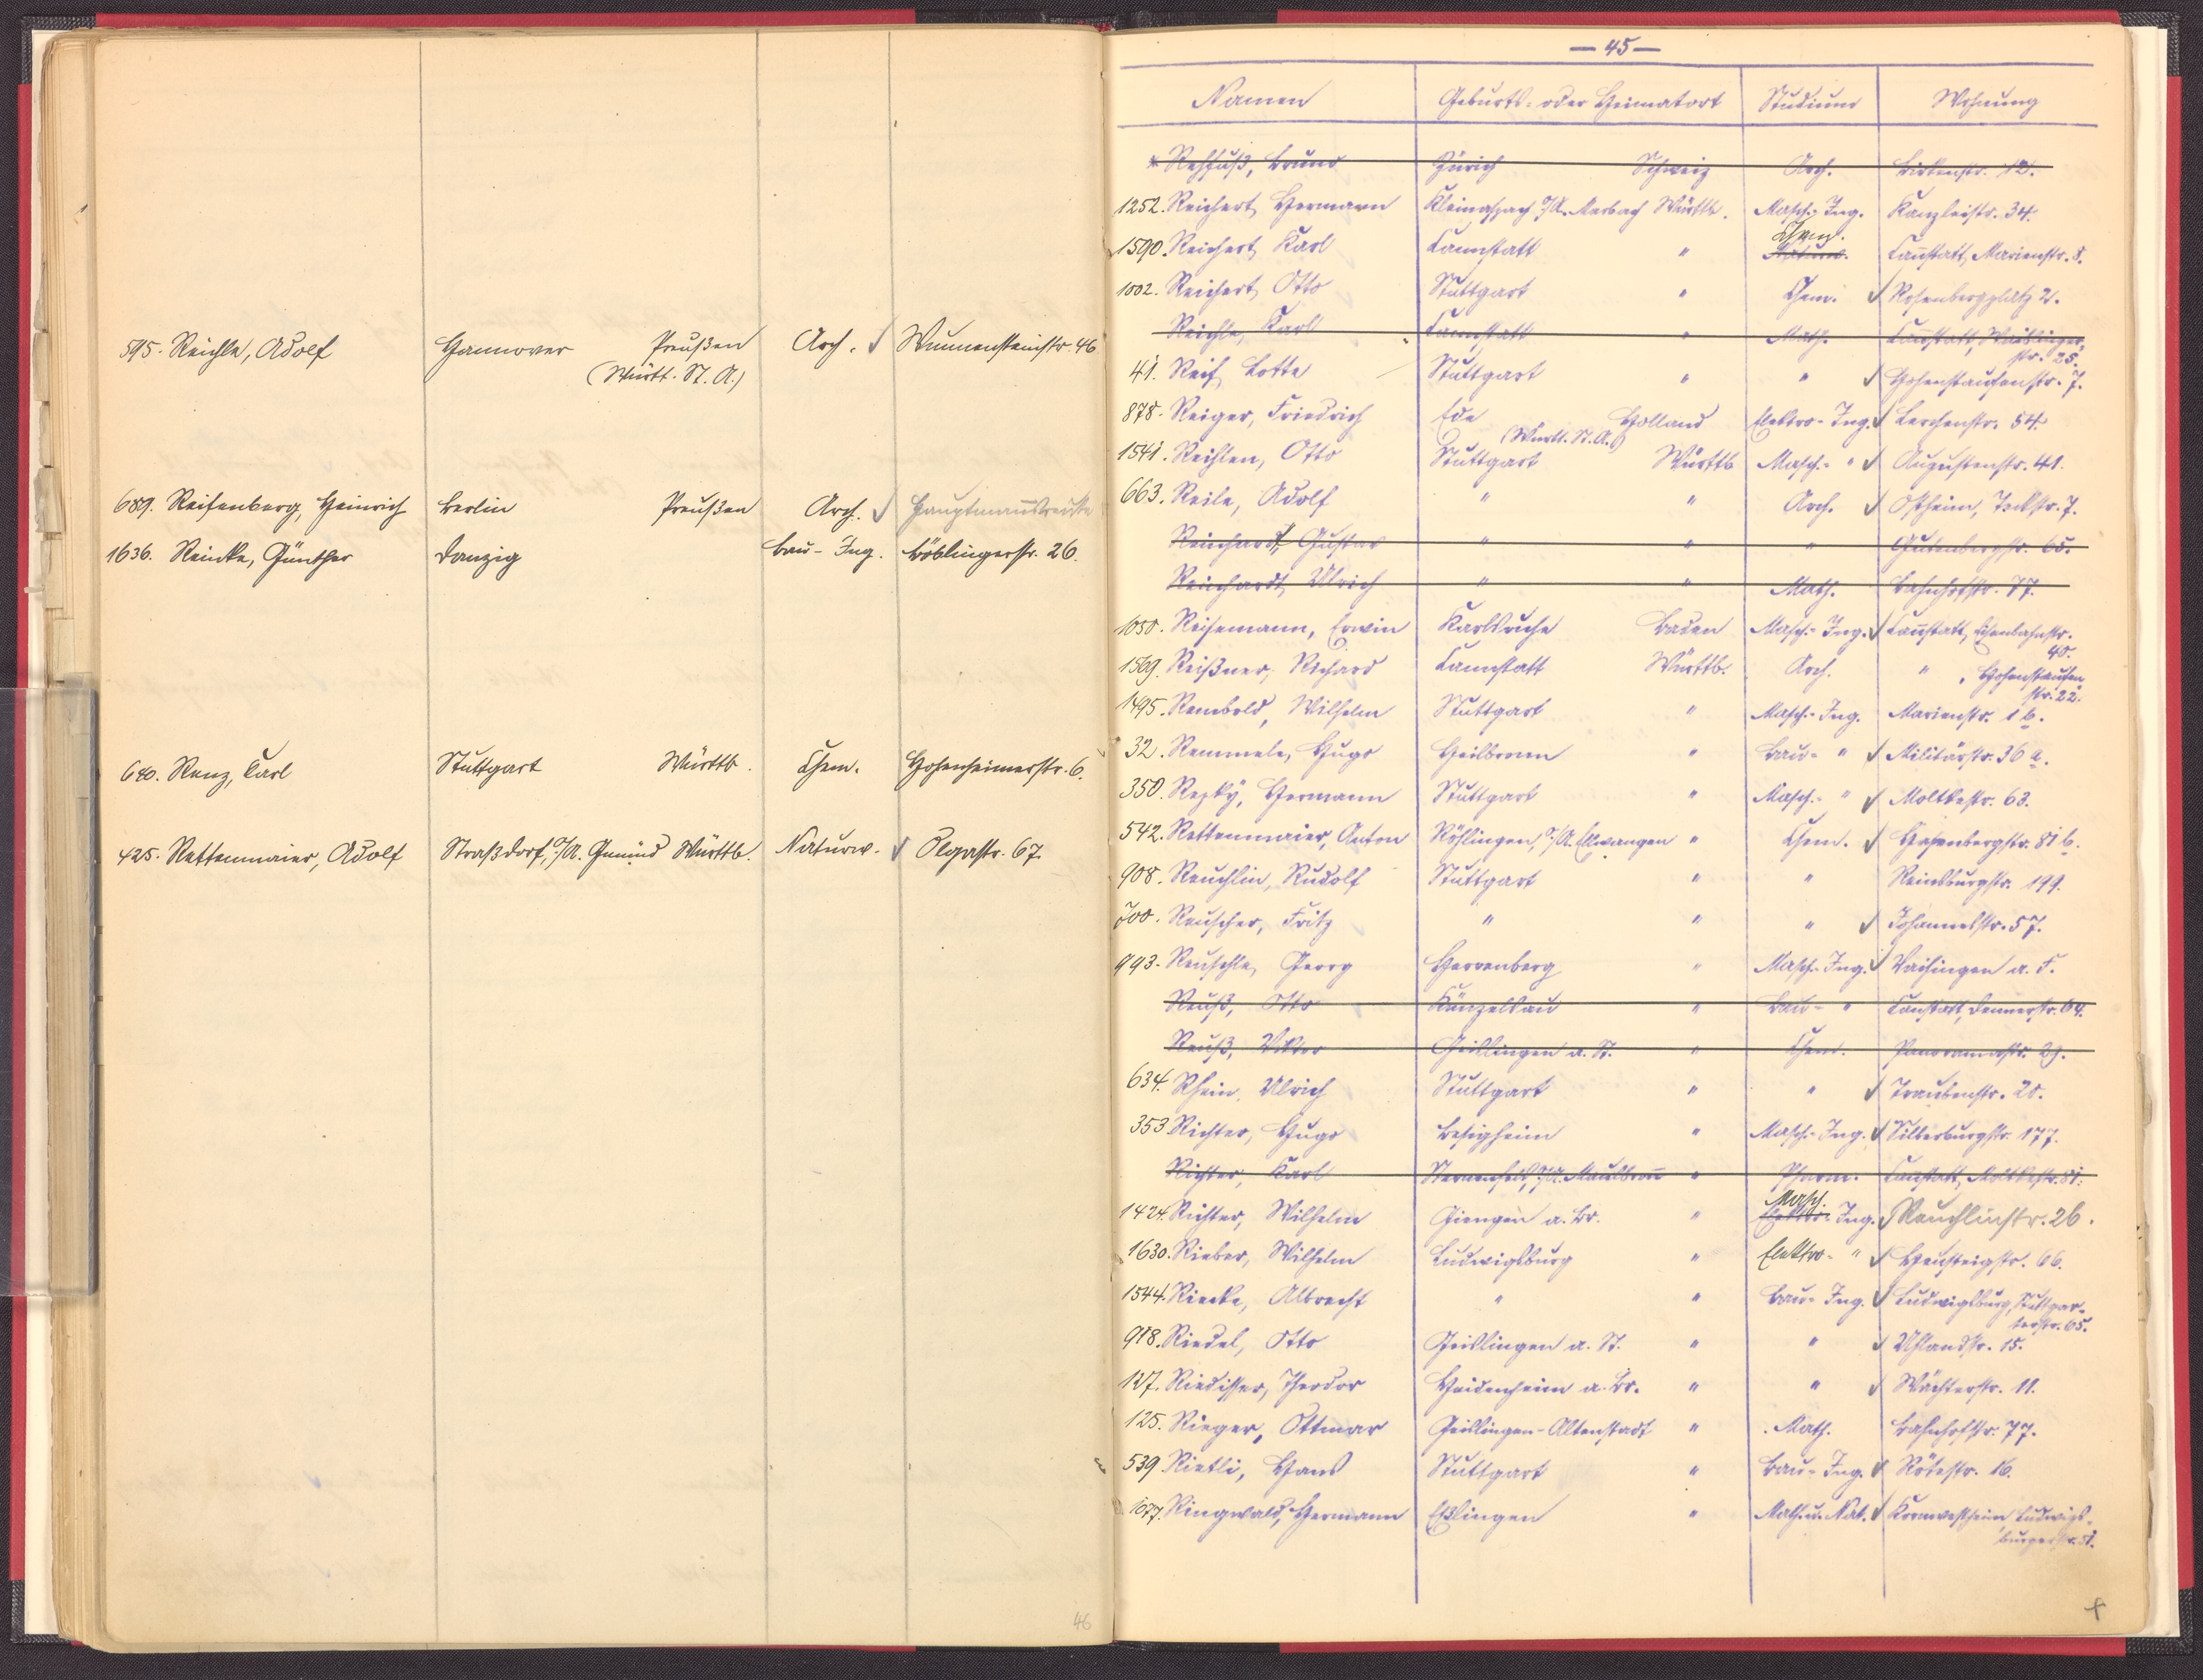 595. Reichle, Adolf Hannover Preußen Arch. ✓ Wunnensteinstr. 46
(Württ. St. A.)
689. Reifenberg, Heinrich Berlin Preußen Arch. ✓ Hauptmannsreute
1636. Reinke, Günther Danzig Bau-Ing. Böblingerstr. 26.
680. Renz, Carl Stuttgart Württb. Chem. Hohenheimerstr. 6.
425. Rettenmaier, Adolf Straßdorf, O/A. Gmünd Württb. Naturw. ✓ Olgastr. 67.
46
— 45 —
Namen Geburts- oder Heimatort Studium Wohnung
* Rehfuß, Bruno Zürich Schweiz Arch. Birkenstr. 12.
1252. Reichert, Hermann Kleinaspach O/A. Marbach Württb. Masch.-Ing. Kanzleistr. 34.
Chem.
1590. Reichert, Karl Cannstatt " Naturw. Cannstatt, Marienstr. 8.
1002. Reichert, Otto Stuttgart " Chem. ✓ Rosenbergplatz 2.
Reichle, Karl Cannstatt " Math. Cannstatt, Waiblinger-
str. 25.
41. Reif, Lotte Stuttgart " " ✓ Hohenstaufenstr. 7.
878. Reiger, Friedrich Ede Holland Elektro-Ing. ✓ Lerchenstr. 54.
(Württ. St. A.)
1541. Reihlen, Otto Stuttgart Württb. Masch.- " ✓ Augustenstr. 41.
663. Reile, Adolf " " Arch. ✓ Ostheim, Teckstr. 7.
Reinhardt, Gustav " " " Gutenbergstr. 65.
Reinhardt, Ulrich " " Math. Bahnhofstr. 77.
1050. Reisemann, Erwin Karlsruhe Baden Masch.-Ing. ✓ Cannstatt, Eisenbahnstr.
40.
1569. Reißner, Richard Cannstatt Württb. Arch. " , Hohenstaufen
str. 22.
1495. Rembold, Wilhelm Stuttgart " Masch.-Ing. Marienstr. 1 b.
32. Remmele, Hugo Heilbronn " Bau- " ✓ Militärstr. 36 a.
350. Repky, Hermann Stuttgart " Masch.- " ✓ Moltkestr. 63.
542. Rettenmaier, Anton Röhlingen, O/A. Ellwangen " Chem. ✓ Hasenbergstr. 81 b.
908. Reuchlin, Rudolf Stuttgart " " Reinsburgstr. 199.
700. Reuscher, Fritz " " " ✓ Johannesstr. 57.
993. Reuschle, Georg Herrenberg " Masch.-Ing. ✓ Vaihingen a. F.
Reuß, Otto Künzelsau " Bau- " Cannstatt, Dennerstr. 64.
Reuß, Viktor Geislingen a. St. " Chem. Panoramastr. 29.
634. Rhein, Ulrich Stuttgart " " ✓ Traubenstr. 20.
353. Richter, Hugo Besigheim " Masch.-Ing. ✓ Silberburgstr. 177.
Richter, Karl Sternenfels, O/A. Maulbronn " Pharm. Cannstatt, Moltkestr. 81.
Masch.
1424. Richter, Wilhelm Giengen a. Br. " Elektro-Ing. ✓ Reuchlinstr. 26.
1630. Rieber, Wilhelm Ludwigsburg " Elektro- " ✓ Heusteigstr. 66.
1544. Riecke, Albrecht " " Bau-Ing. ✓ Ludwigsburg, Stuttgar-
terstr. 65.
918. Riedel, Otto Geislingen a. St. " " ✓ Uhlandstr. 15.
127. Riedisser, Theodor Heidenheim a. Br. " " ✓ Wächterstr. 11.
125. Rieger, Ottmar Geislingen-Altenstadt " Math. Bahnhofstr. 77.
539. Rietli, Hans Stuttgart " Bau-Ing. ✓ Rötestr. 16.
1077. Ringwald, Hermann Eßlingen " Math. u. Nat. ✓ Kornwestheim Ludwigs-
burgerstr. 51.